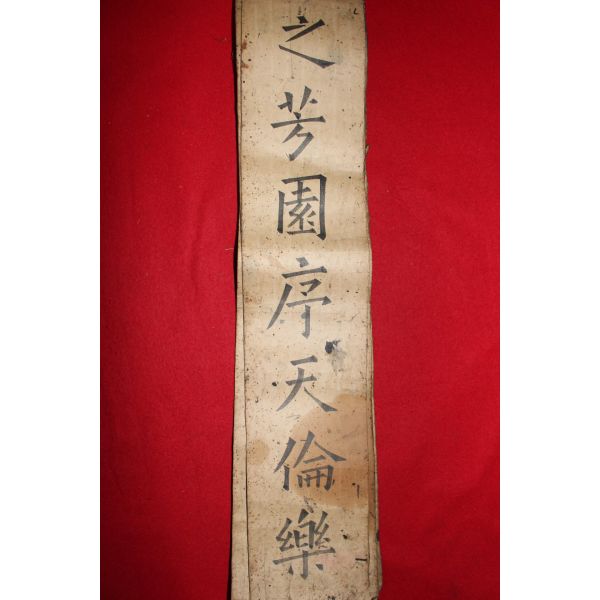 之芳園序天倫樂